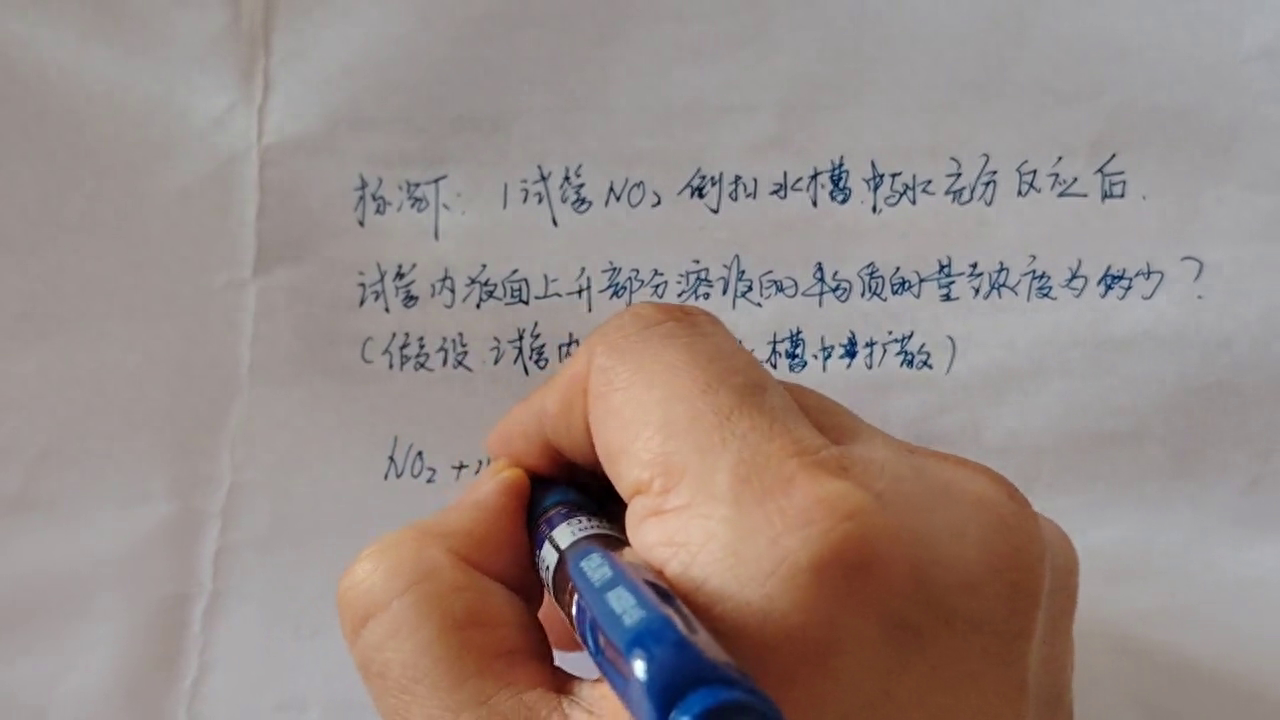 标况下: 1试管NO₂倒扣水槽中与水充分反应后.
试管内液面上升部分溶液的物质的量浓度为多少?
(假设试管内 水槽中扩散)
NO₂ +